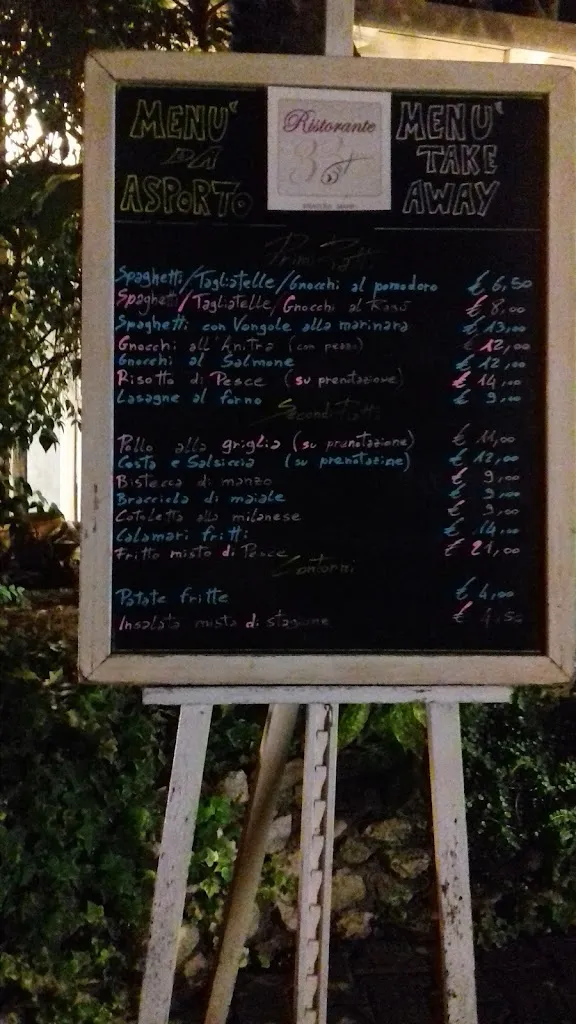 MENU'
DA
ASPORTO
Ristorante
33
MENU'
TAKE
AWAY
Primi Piatti
Spaghetti/Tagliatelle/Gnocchi al pomodoro € 6,50
Spaghetti/Tagliatelle/Gnocchi al Ragù € 8,00
Spaghetti con Vongole alla marinara € 13,00
Gnocchi all'Anitra (con pezzi) € 12,00
Gnocchi al Salmone € 12,00
Risotto di Pesce (su prenotazione) € 14,00
Lasagne al forno € 9,00
Secondi Piatti
Pollo alla griglia (su prenotazione) € 11,00
Costa e Salsiccia (su prenotazione) € 12,00
Bistecca di manzo € 9,00
Bracciola di maiale € 9,00
Cotoletta alla milanese € 9,00
Calamari fritti € 14,00
Fritto misto di Pesce € 21,00
Contorni
Patate fritte € 4,00
Insalata mista di stagione € 4,50